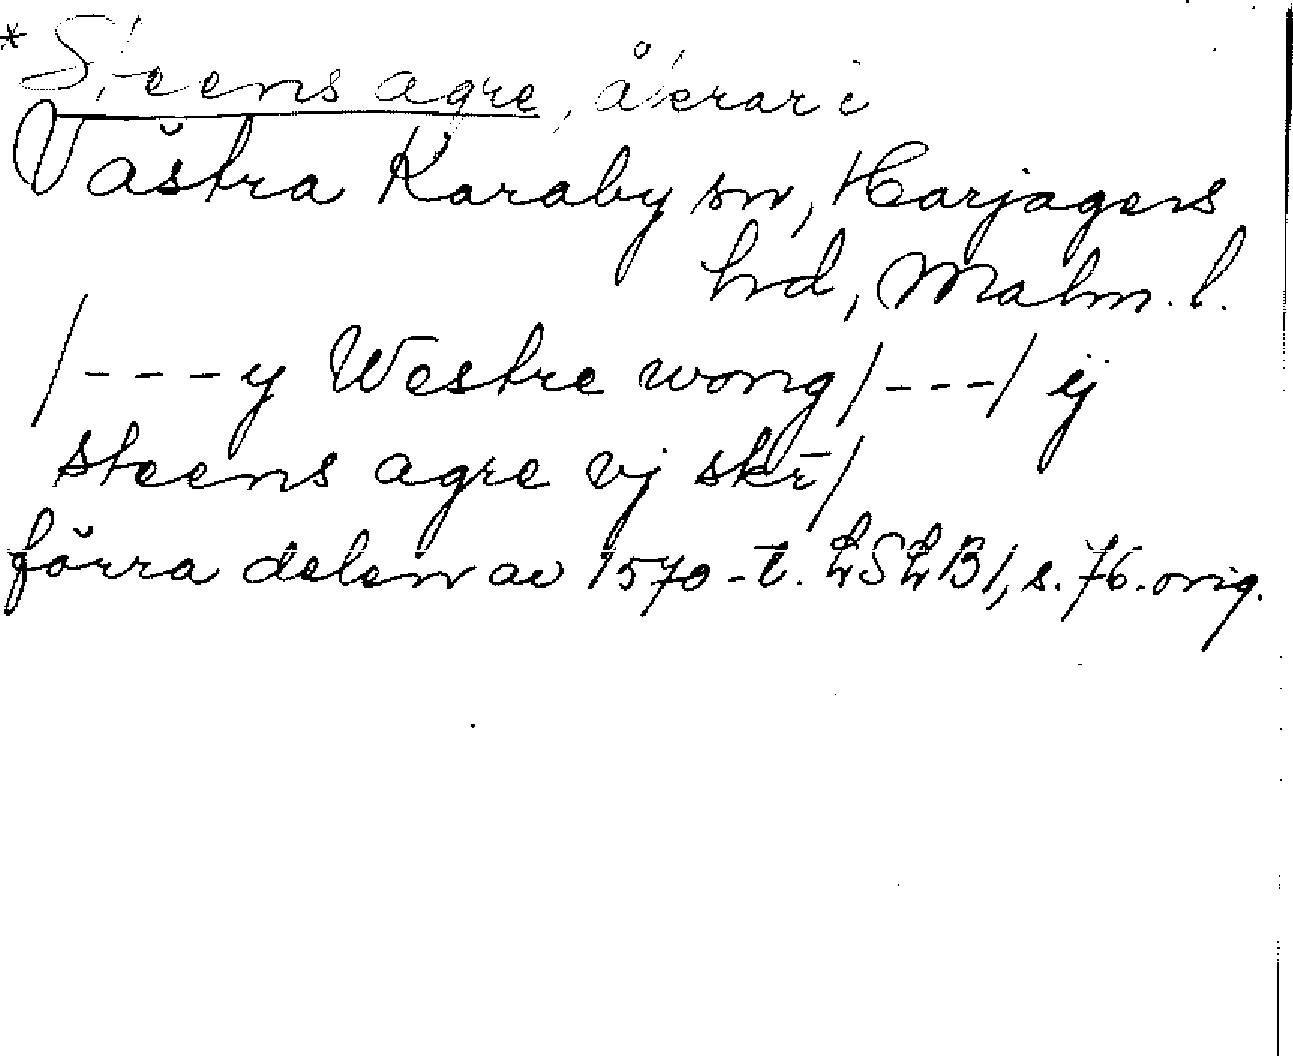 *Steens agre, åkrar i
Västra Karaby sn, Harjagers
hd, Malm. l.
/- - - y Westre wong/- - -/ ij
steens agre vj skr̄/
förra delen av 1570-t. LSLB1, s. 76. orig.